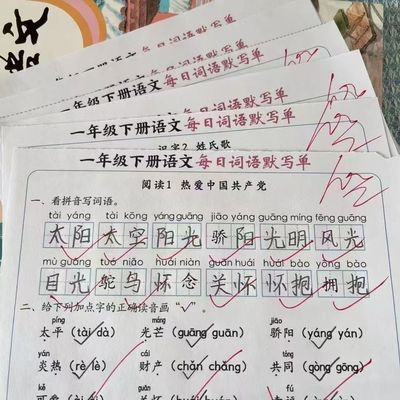 一年级下册语文每日词语默写单
一年级下册语文每日词语默写单
识字2 姓氏歌
一年级下册语文每日词语默写单
阅读1 热爱中国共产党
一、看拼音写词语。
tài yáng tài kōng yáng guāng jiāo yáng guāng míng fēng guāng
太阳 太空 阳光 骄阳 光明 风光
mù guāng tuó niǎo huái niàn guān huái huái bào yōng bào
目光 鸵鸟 怀念 关怀 怀抱 拥抱
二、给下列加点字的正确读音画“✓”。
píng jiāo
太平（tài dà） 光芒（guāng guān） 骄阳（yáng yán）
yán cái tóng
炎热（rè lè） 财产（chǎn chǎng） 共同（gòng gōng）
kě
可爱